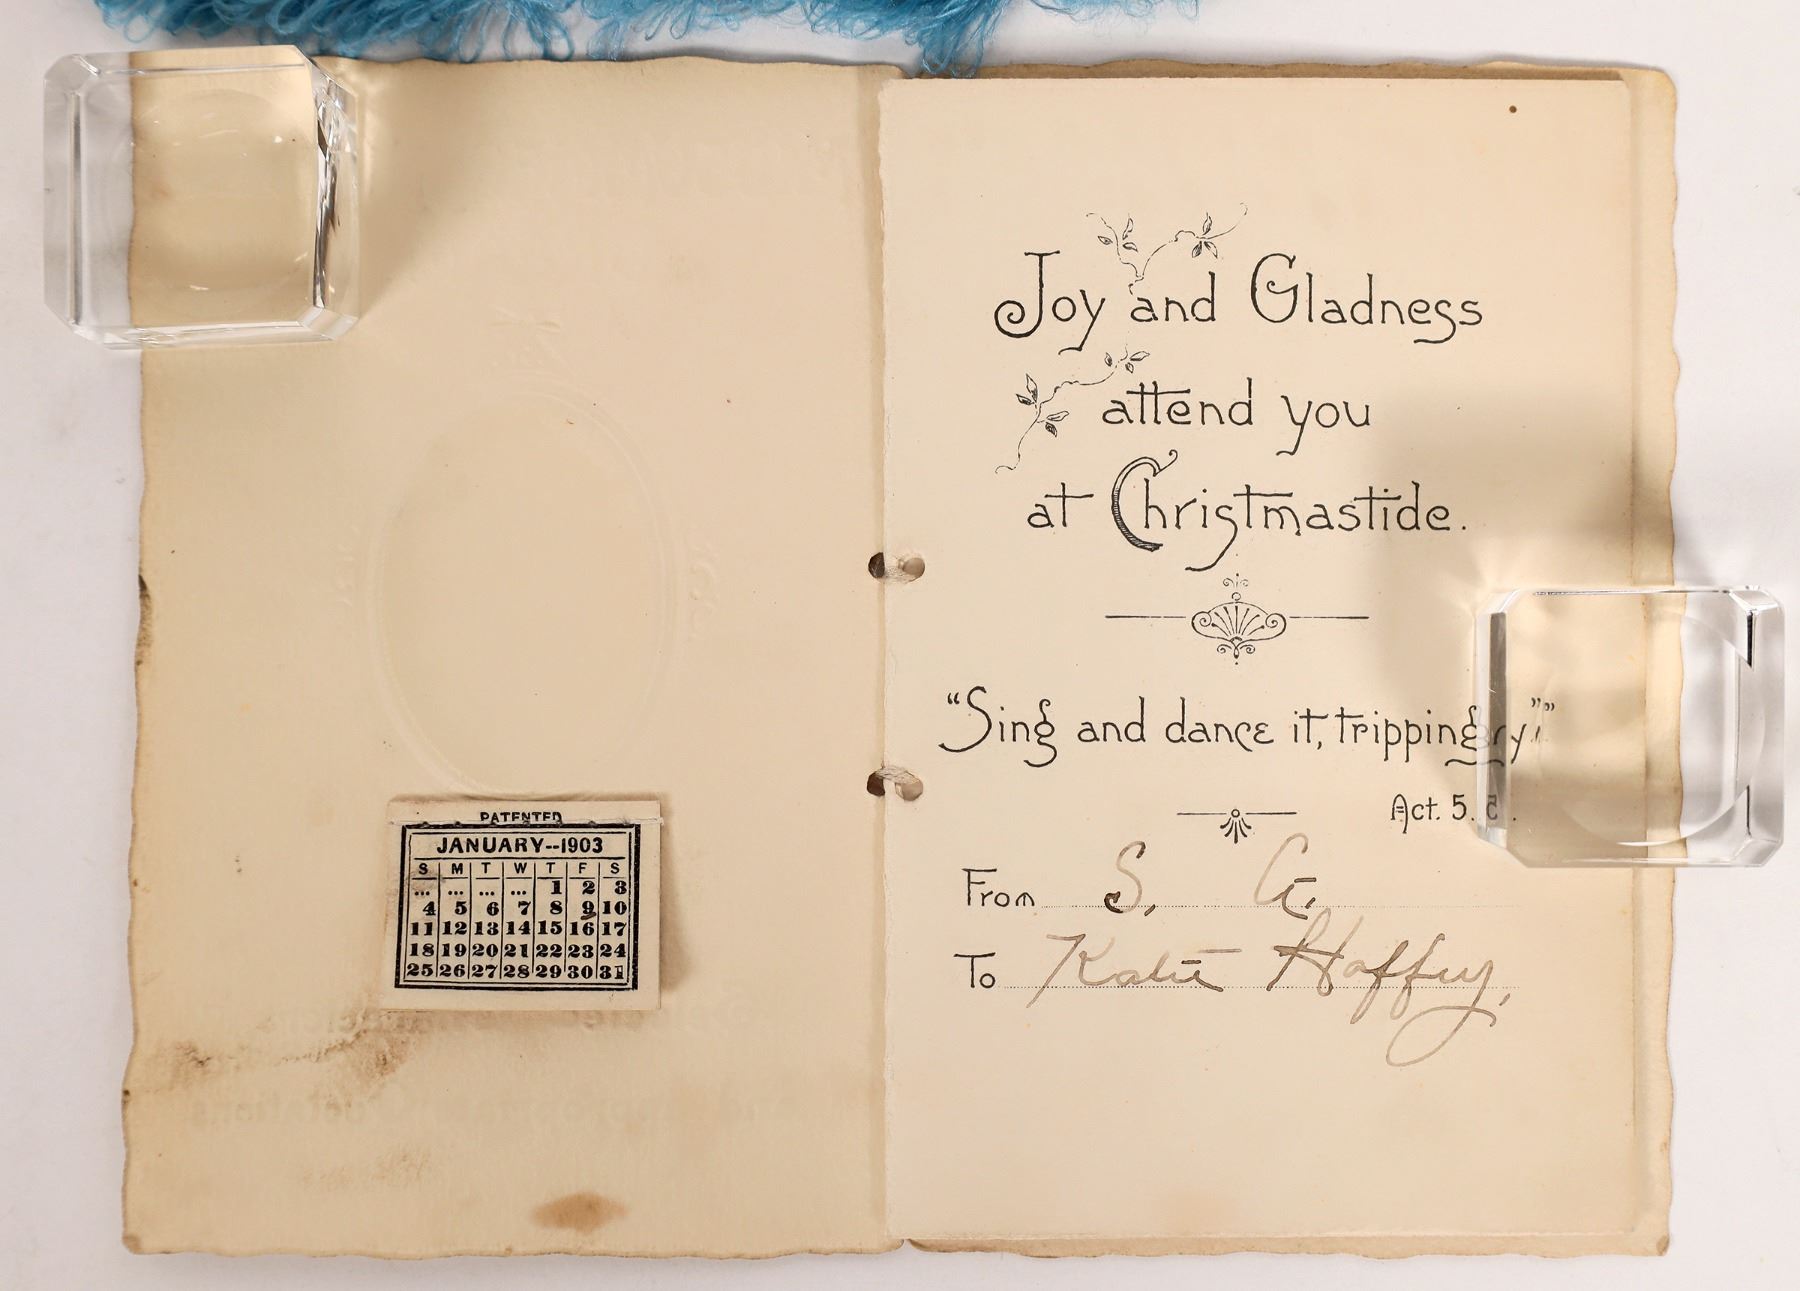 PATENTED
JANUARY--1903
S M T W T F S
... ... ... ... 1 2 3
4 5 6 7 8 9 10
11 12 13 14 15 16 17
18 19 20 21 22 23 24
25 26 27 28 29 30 31
Joy and Gladness
attend you
at Christmastide.
"Sing and dance it, trippingly."
Act. 5.
From S. A.
To Katie Haffey,